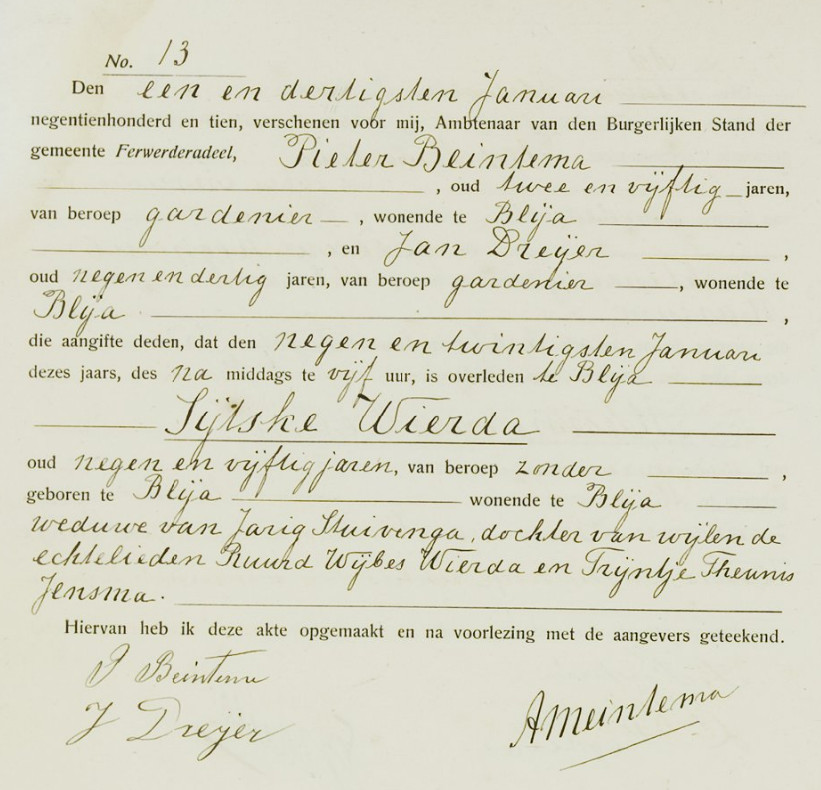 No. 13
Den een en dertigsten Januari
negentienhonderd en tien, verschenen voor mij, Ambtenaar van den Burgerlijken Stand der
gemeente Ferwerderadeel, Pieter Beintema
, oud twee en vijftig jaren,
van beroep gardenier, wonende te Blija
, en Jan Dreijer ,
oud negen en dertig jaren, van beroep gardenier , wonende te
Blija ,
die aangifte deden, dat den negen en twintigsten Januari
dezes jaars, des na middags te vijf uur, is overleden te Blija
Sijtske Wierda
oud negen en vijftig jaren, van beroep zonder ,
geboren te Blija wonende te Blija
weduwe van Jarig Stuivenga, dochter van wijlen de
echtelieden Ruurd Wijbes Wierda en Trijntje Theunis
Jensma.
Hiervan heb ik deze akte opgemaakt en na voorlezing met de aangevers geteekend.
P Beintema
J Dreijer
AMeintema